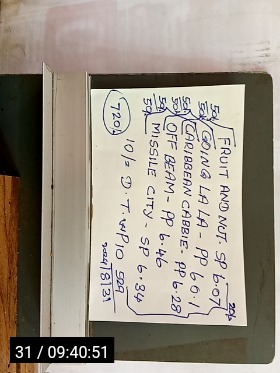 FRUIT AND NUT. SP 6.07
GOING LA LA - PP 6.01
CARIBBEAN CABBIE PP 6.28
OFF BEAM - PP 6.46
MISSILE CITY - SP 6.34
50p
50p
50p
50p
720p
10/= D.T. P10 929
31 / 09:40:51